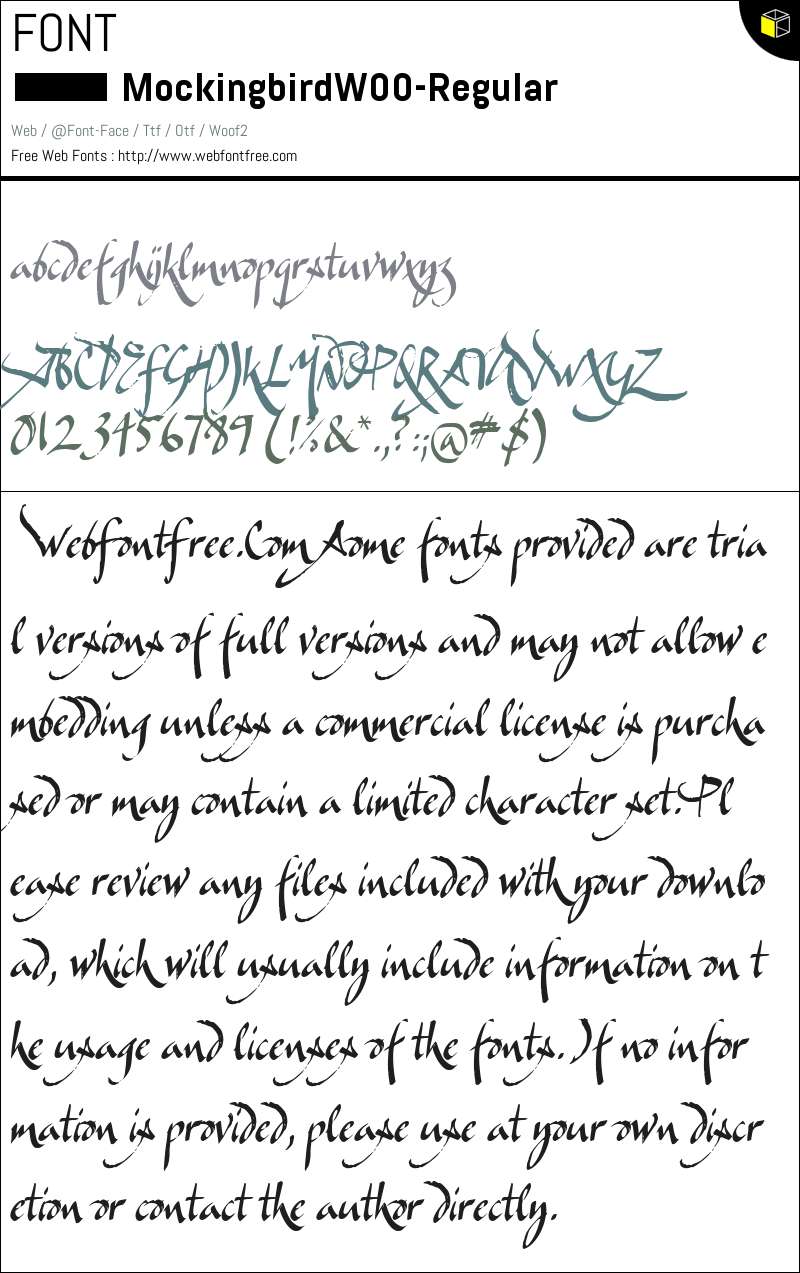 FONT
MockingbirdW00-Regular
Web / @Font-Face / Ttf / Otf / Woof2
Free Web Fonts : http://www.webfontfree.com
abcdefghijklmnopqrstuvwxyz
ABCDEFGHIJKLMNOPQRSTUVWXYZ
0123456789(!%&*.,?:;@#$)
Webfontfree.Com Some fonts provided are tria
l versions of full versions and may not allow e
mbedding unless a commercial license is purcha
sed or may contain a limited character set.Pl
ease review any files included with your downlo
ad, which will usually include information on t
he usage and licenses of the fonts. If no infor
mation is provided, please use at your own discr
etion or contact the author directly.